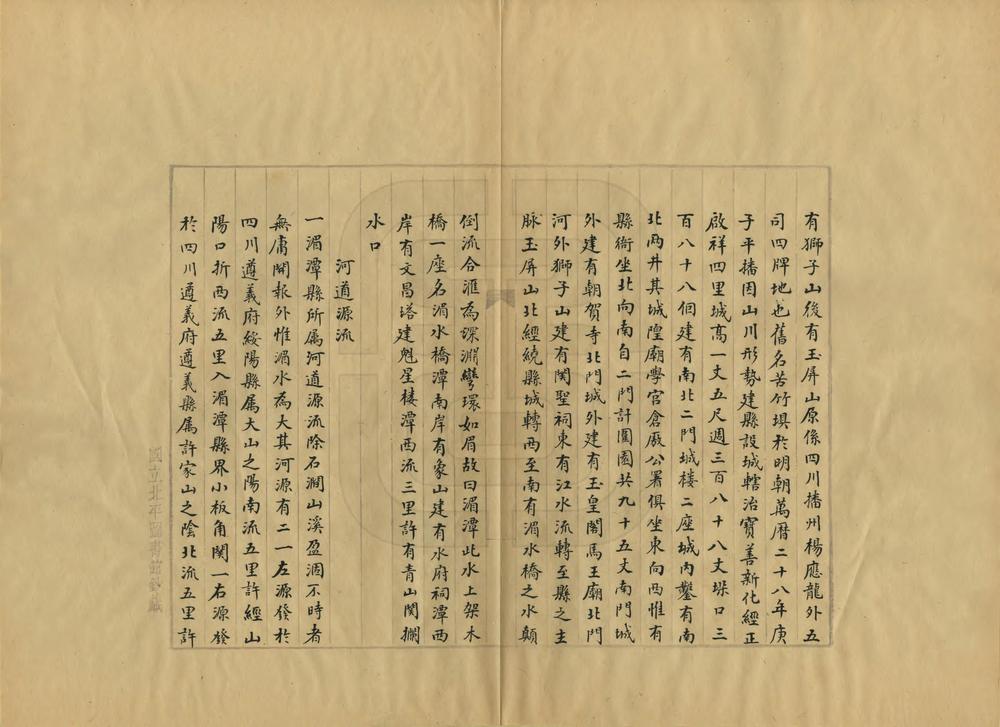 有獅子山後有玉屏山原係四川播州楊應龍外五
司四牌地也舊名苦竹壩於明朝萬曆二十八年庚
子平播因山川形勢建縣設城轄治寶善新化經正
啟祥四里城高一丈五尺週三百八十八丈垛口三
百八十八個建有南北二門城楼二座城內鑿有南
北兩井其城隍廟學官倉厫公署俱坐東向西惟有
縣衙坐北向南自二門計闊園共九十五丈南門城
外建有朝賀寺北門城外建有玉皇閣馬王廟北門
河外獅子山建有関聖祠東有江水流轉至縣之主
脉玉屏山北經繞縣城轉西至南有湄水橋之水顛
倒流合滙為深淵彎環如眉故曰湄潭此水上架木
橋一座名湄水橋潭南岸有象山建有水府祠潭西
岸有文昌塔建魁星楼潭西流三里許有青山関攔
水口
河道源流
一湄潭縣所属河道源流除石澗山溪盈涸不時者
無庸開報外惟湄水為大其河源有二一左源發於
四川遵義府綏陽縣属大山之陽南流五里許經山
陽口折西流五里入湄潭縣界小板角関一右源發
於四川遵義府遵義縣属許家山之陰北流五里許
國立北平圖書館鈔藏